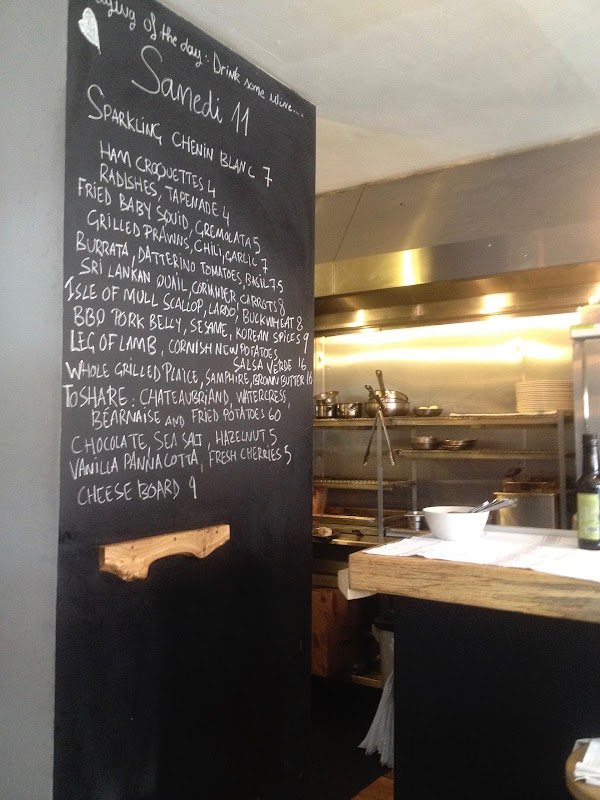 of the day: Drink some wine....
Samedi 11
SPARKLING CHENIN BLANC 7
HAM CROQUETTES 4
RADISHES, TAPENADE 4
FRIED BABY SQUID, GREMOLATA 5
GRILLED PRAWNS, CHILI, GARLIC 7
BURRATA, DATTERINO TOMATOES, BASIL 7.5
SRI LANKAN QUAIL, CORIANDER, CARROTS 8
ISLE OF MULL SCALLOP, LARDO, BUCKWHEAT 8
BBQ PORK BELLY, SESAME, KOREAN SPICES 9
LEG OF LAMB, CORNISH NEW POTATOES
SALSA VERDE 16
WHOLE GRILLED PLAICE, SAMPHIRE, BROWN BUTTER 16
TO SHARE: CHATEAUBRIAND, WATERCRESS,
BÉARNAISE AND FRIED POTATOES 60
CHOCOLATE, SEA SALT, HAZELNUT 5
VANILLA PANNACOTTA, FRESH CHERRIES 5
CHEESE BOARD 9